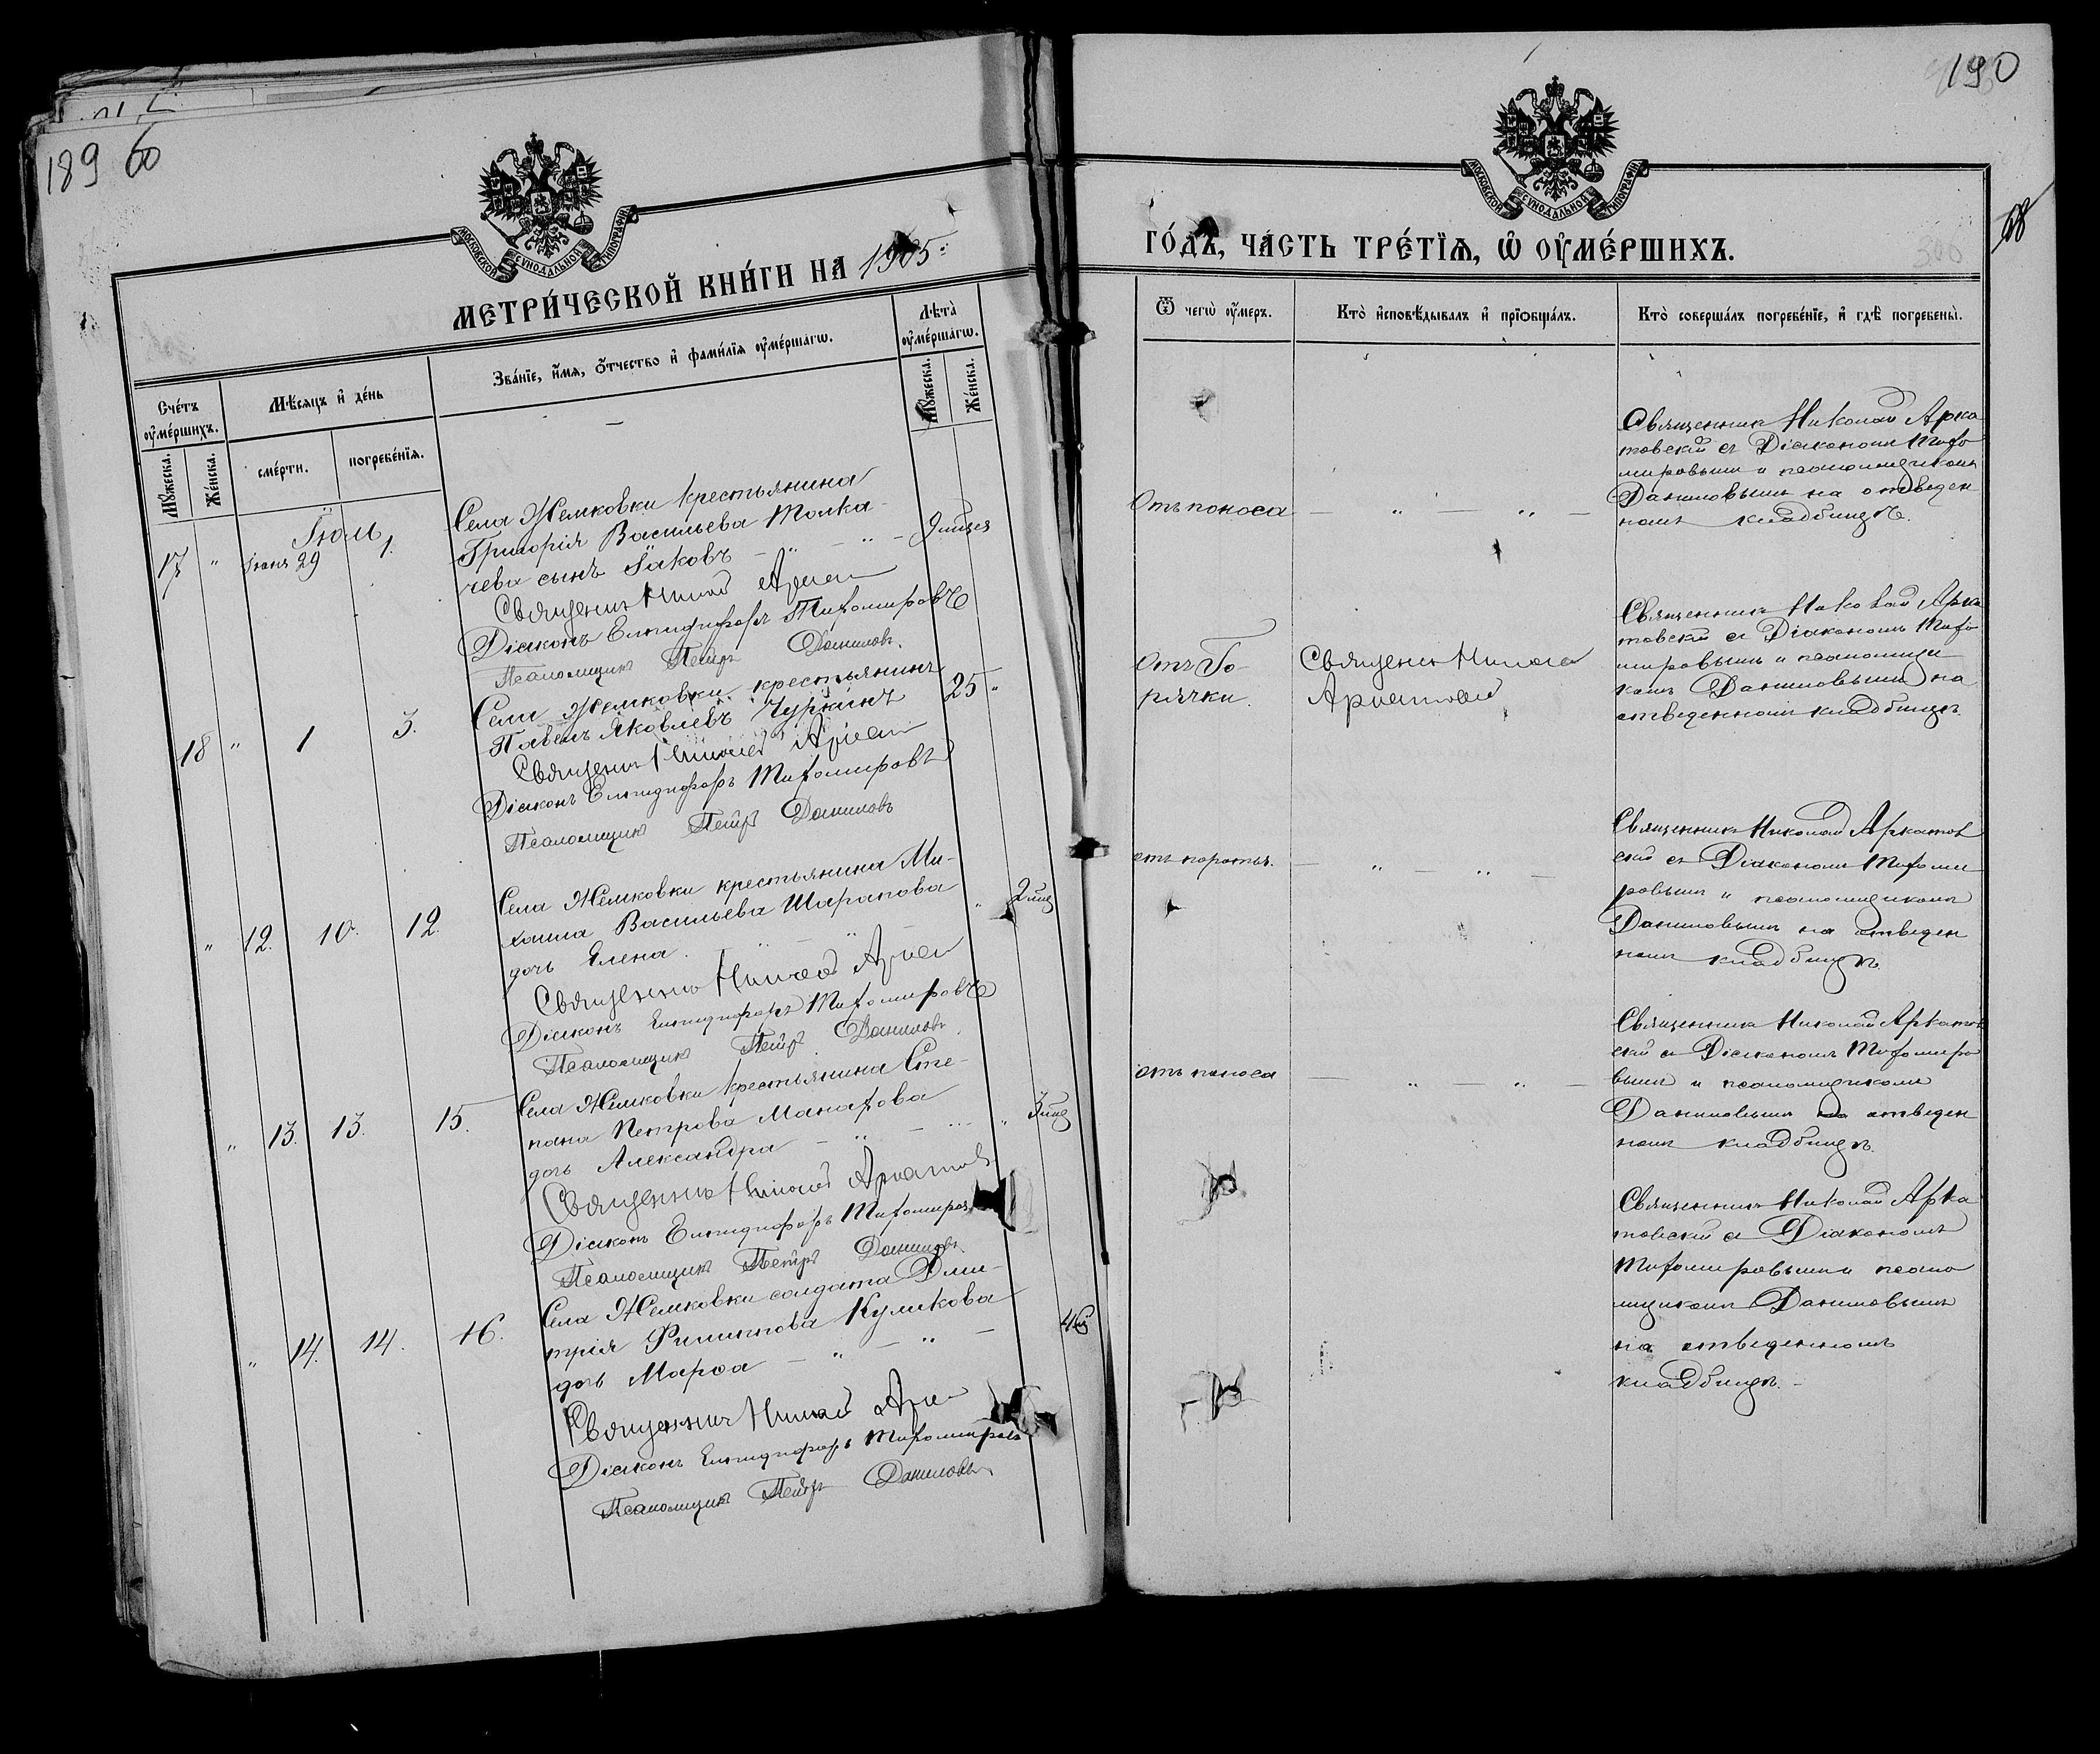 189 об
МОСКОВСКОЙ СѴНОДАЛЬНОЙ ТИПОГРАФІИ
МЕТРИ́ЧЕСКОЙ КНИ́ГИ НА 1905
Сче́тъ ᲂу҆ме́ршихъ.
Мѣ́сѧцъ и҆ де́нь
Зва́нїе, и҆́мѧ, ѻ҆́тчество и҆ фами́лїѧ ᲂу҆ме́ршагѡ.
Лѣ́та ᲂу҆ме́ршагѡ.
Мꙋ́жеска.
Же́нска.
сме́рти.
погребе́нїѧ.
Мꙋ́жеска.
Же́нска.
Іюль
17 " Іюня 29 1.
Села Жемковки крестьянина
Григорія Васильева Толка-
чева сынъ Іаковъ — " — " — 9 мѣсяц
Священникъ Николай
Діаконъ Елпидифоръ Тихомировъ
Псаломщикъ Петръ Даниловъ.
18 " 1 3.
Села Жемковки крестьянинъ 25 "
Павелъ Яковлевъ Чуркинъ
Священникъ Николай
Діаконъ Елпидифоръ Тихомировъ
Псаломщикъ Петръ Даниловъ
" 12. 10. 12.
Села Жемковки крестьянина Ми-
хаила Васильева Шарапова " 2 мѣс
дочь Елена.
Священникъ Николай
Діаконъ Елпидифоръ Тихомировъ
Псаломщикъ Петръ Даниловъ.
" 13. 13. 15.
Села Жемковки крестьянина Сте-
пана Петрова Манахова
дочь Александра — " — " 3 мѣс
Священникъ Николай Аркатов
Діаконъ Елпидифоръ Тихомировъ
Псаломщикъ Петръ Даниловъ.
" 14. 14. 16.
Села Жемковки солдата Дми-
трія Филиппова Куликова
дочь Марѳа — " — " —
Священникъ Николай
Діаконъ Елпидифоръ Тихомировъ
Псаломщикъ Петръ Даниловъ
190
МОСКОВСКОЙ СѴНОДАЛЬНОЙ ТИПОГРАФІИ
ГО́ДЪ, ЧА́СТЬ ТРЕ́ТЇѦ, Ѡ҆ ОУ҆МЕ́РШИХЪ.
Ѿ чегѡ̀ ᲂу҆́меръ.
Кто̀ и҆сповѣ́дывалъ и҆ прїѻбща́лъ.
Кто̀ соверша́лъ погребе́нїе, и҆ гдѣ̀ погребены̀.
Отъ поноса — " — " —
Священникъ Николай Арка
товскій съ Діакономъ Тихо
мировымъ и псаломщикомъ
Даниловымъ на отведен
номъ кладбищѣ.
Отъ Го-
рячки.
Священникъ Николай
Аркатовскій
Священникъ Николай Арка
товскій съ Діакономъ Тихо
мировымъ и псаломщи
комъ Даниловымъ на
отведенномъ кладбищѣ.
— " — " —
Священникъ Николай Аркатов
скій съ Діакономъ Тихоми
ровымъ и псаломщикомъ
Даниловымъ на отведен
номъ кладбищѣ.
отъ поноса — " " —
Священникъ Николай Аркатов
скій съ Діакономъ Тихомиро
вымъ и псаломщикомъ
Даниловымъ на отведен
номъ кладбищѣ.
Священникъ Николай Арка
товскій съ Діакономъ
Тихомировымъ и псало
мщикомъ Даниловымъ
на отведенномъ
кладбищѣ. –